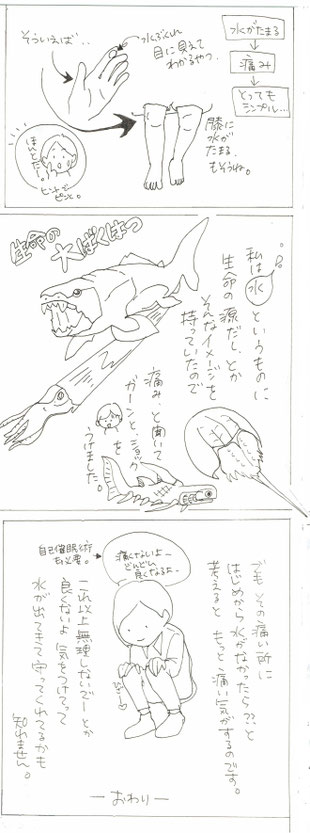 水がたまる
痛み
とってもシンプル…
水ぶくれ
目に見えて
わかるやつ。
そういえば‥
膝に
水が
たまる
もそうね。
ほんとだー
ピンとピンと。
生命の大ばくはつ
私は水というものに
生命の源だし、とか
そんなイメージを
持っていたので
痛み、と聞いて
ガーンとショックを
うけました。
でもその痛い所に
はじめから水がなかったら??と
考えると もっと、痛い気がするのです。
痛くないよー
どんどん
良くなるよー
自己催眠術
も必要。
これ以上無理しないでーとか
良くないよ 気をつけてって
水が出てきて守ってくれてるかも
知れません。
―おわり―